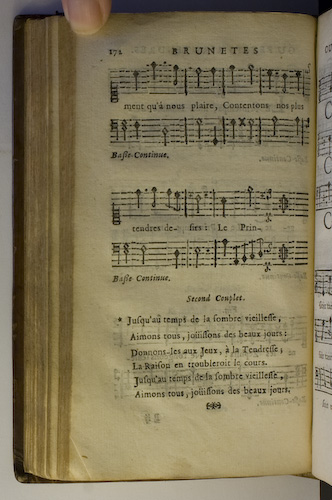 172 BRUNETES
ment qu'à nous plaire, Contentons nos plus
Basse-Continue.
tendres de- sirs: Le Prin-
Basse-Continue.
Second Couplet.
* Jusqu'au temps de la sombre vieillesse,
Aimons tous, joüissons des beaux jours:
Donnons-les aux Jeux, à la Tendresse;
La Raison en troubleroit le cours.
Jusqu'au temps de la sombre vieillesse,
Aimons tous, joüissons des beaux jours.